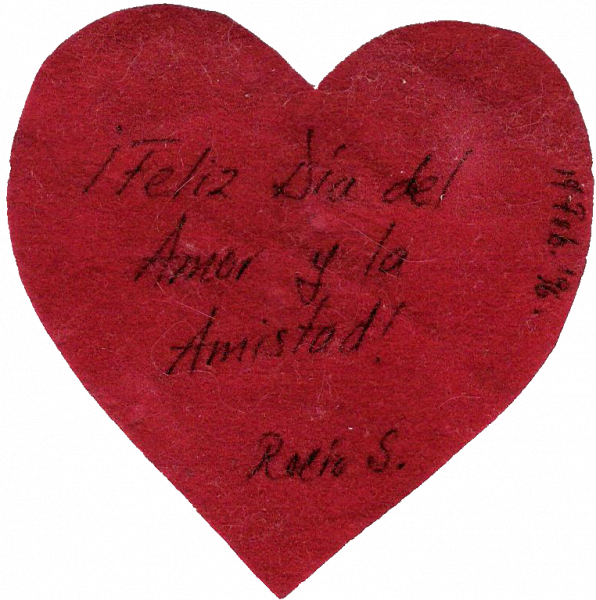 ¡Feliz Día del
Amor y la
Amistad!
Rocío S.
14 Feb. '96.